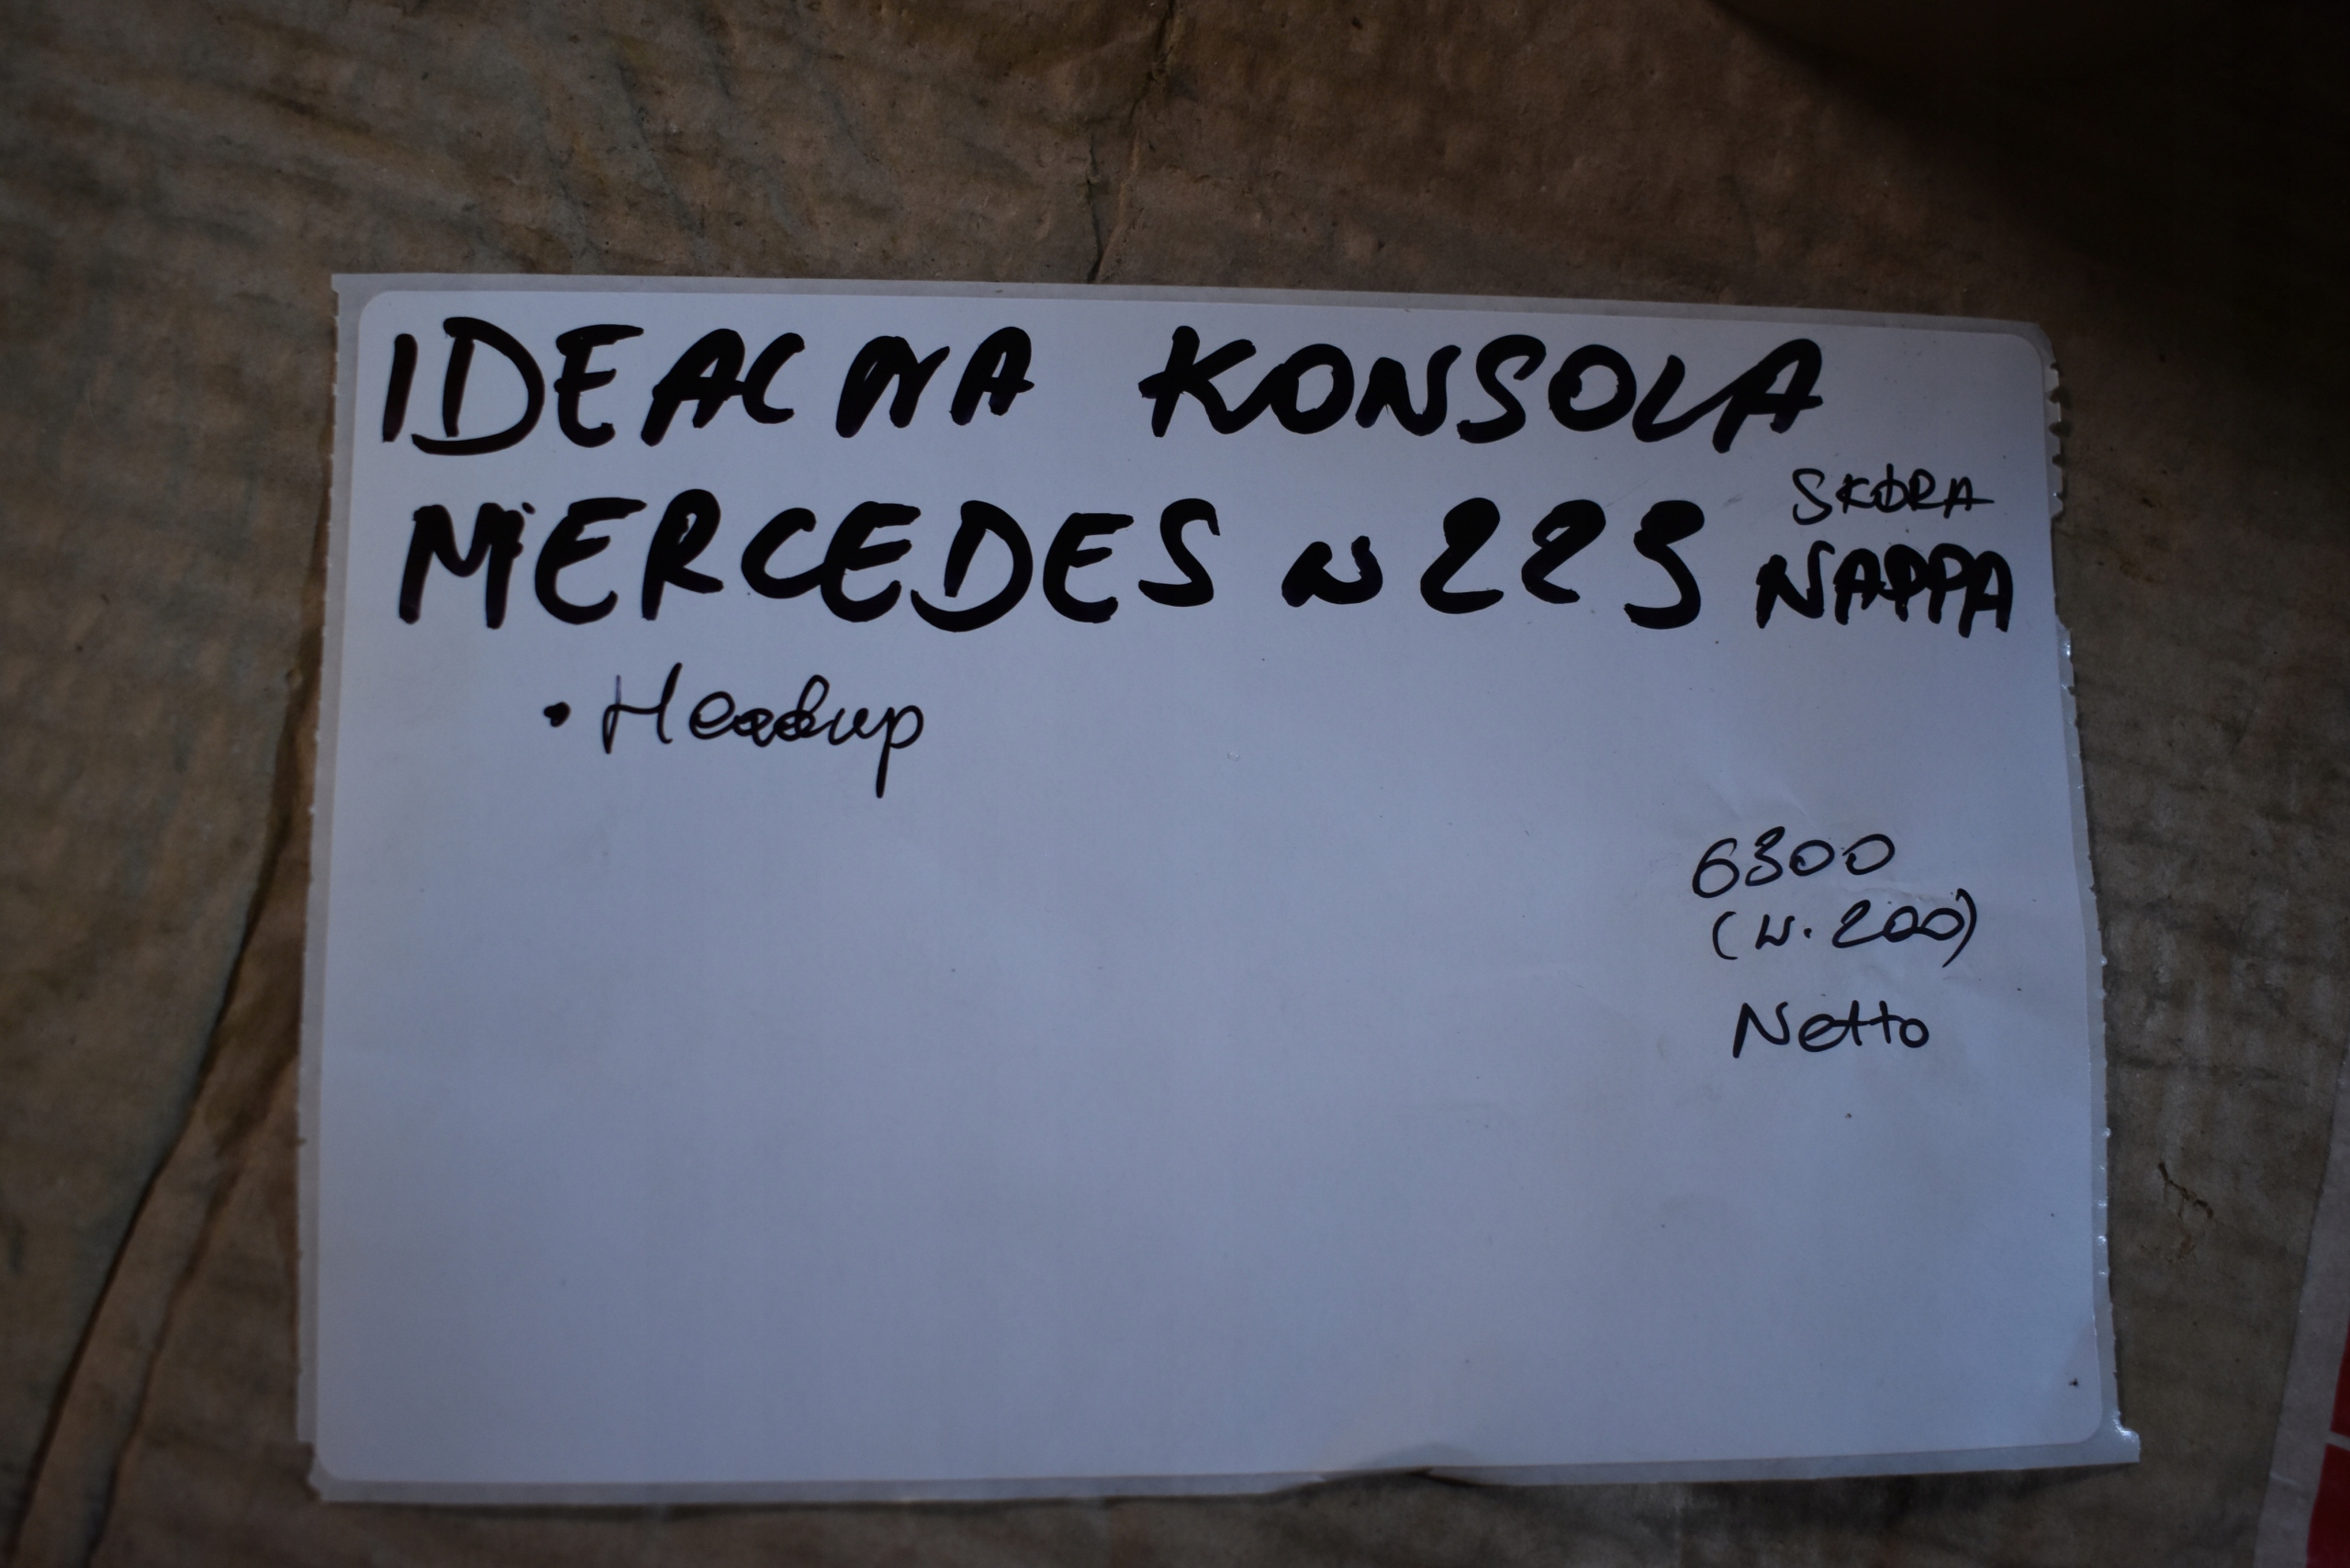 IDEALNA KONSOLA
MERCEDES W223 SKÓRA NAPPA
• Headup
6300
(W. 200)
Netto